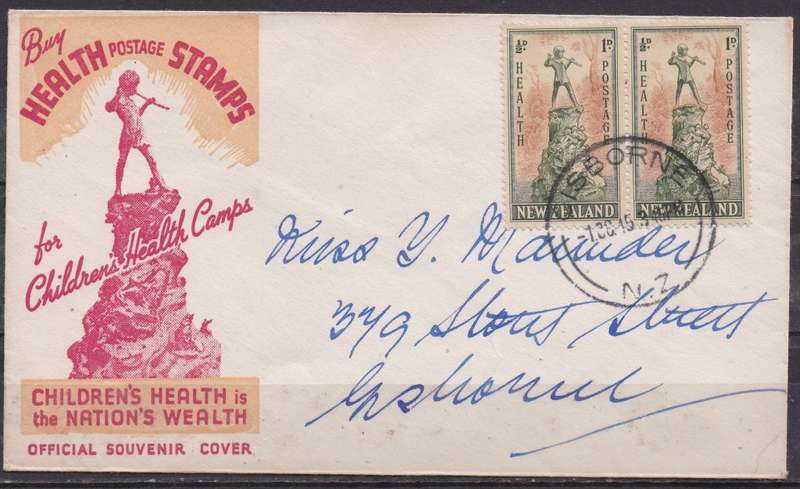 Buy
HEALTH POSTAGE STAMPS
for
Children's Health Camps
CHILDREN'S HEALTH is
the NATION'S WEALTH
OFFICIAL SOUVENIR COVER
½D 1D.
HEALTH POSTAGE
NEW ZEALAND
½D 1D.
HEALTH POSTAGE
NEW ZEALAND
ISBORNE
N.Z
Miss Y.
379 Stout Street
Gisborne